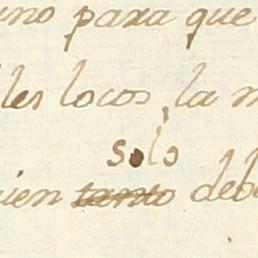 uno para que
les locos, la
solo
uien tanto deb